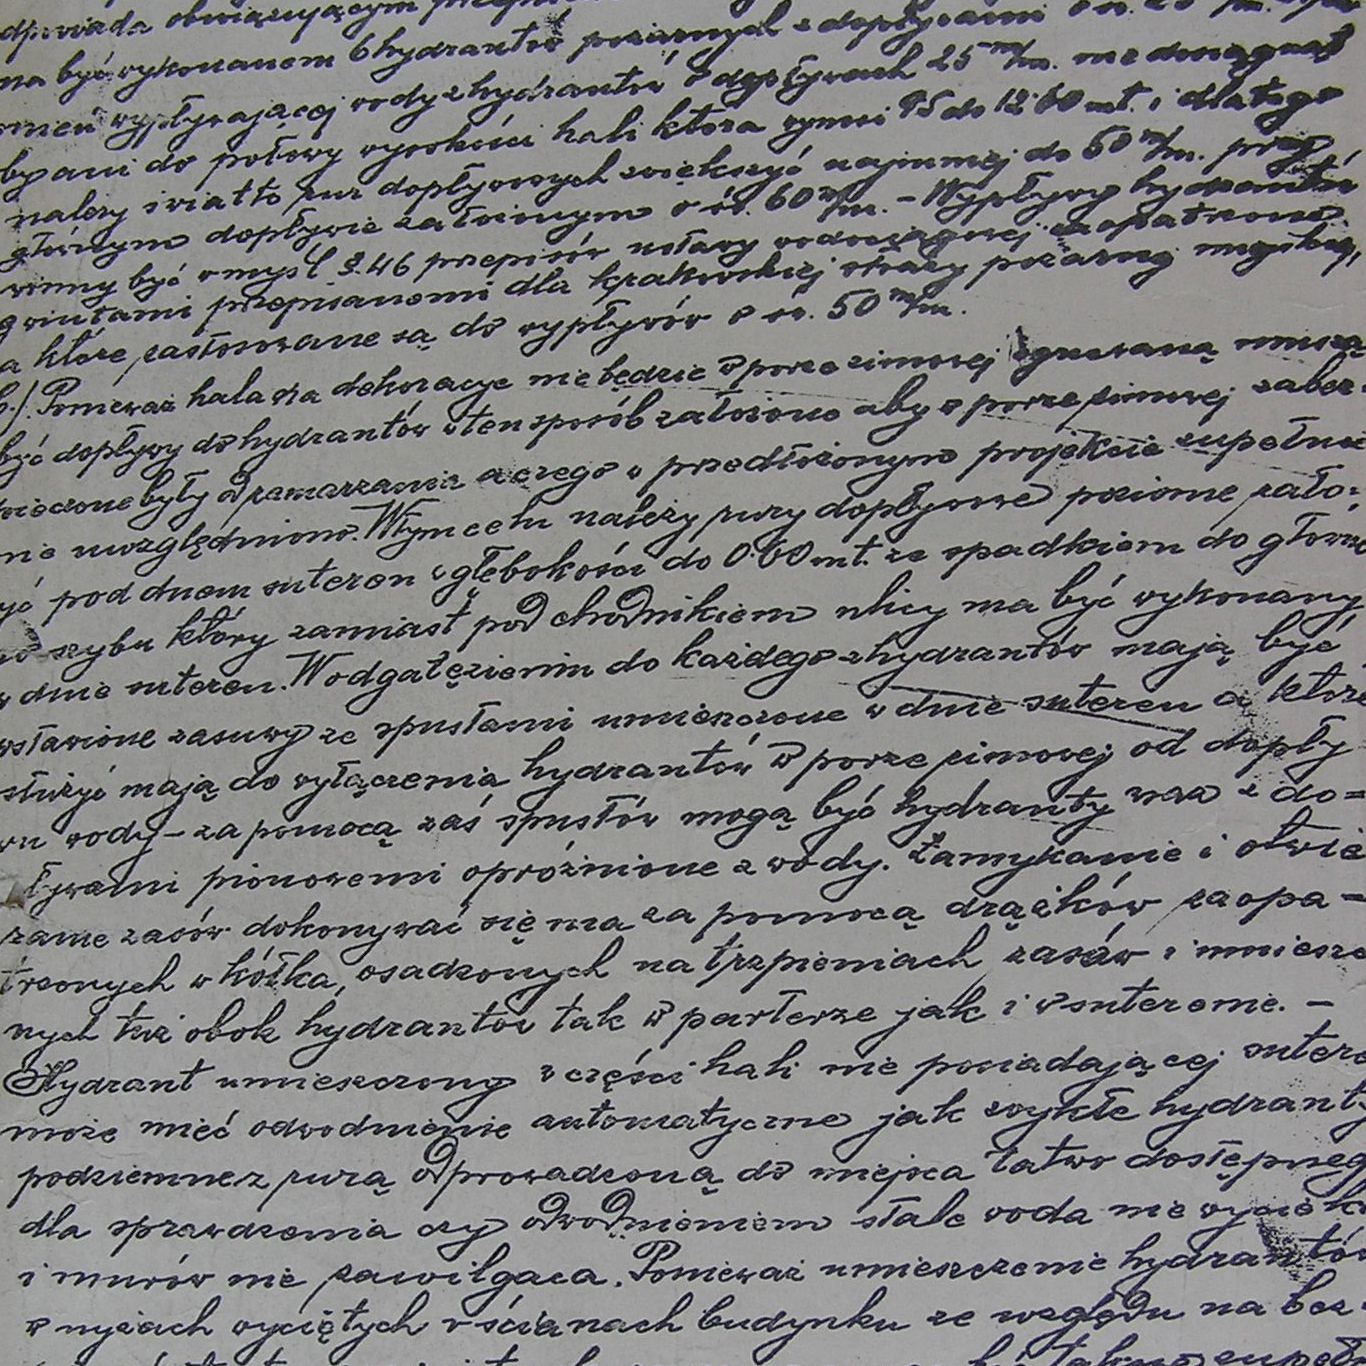 odpowiada obowiązującym
na być wykonanem 6 hydrantów pożarnych z dopływami o św. 25 m/m.
wypływającej wody z hydrantów o dopływach 25 m/m. nie dosięgnął
by ani do połowy wysokości hali która wynosi 9·5 do 12·60 mt. i dlatego
należy światło rur dopływowych zwiększyć najmniej do 50 m/m. przy
głównym dopływie założonym o św. 60 m/m. – Wypływy hydrantów
winny być w myśl §. 46 przepisów ustawy wodociągowej zaopatrzone
gwintami przepisanemi dla krakowskiej straży pożarnej miejskiej,
a które zastosowane są do wypływów o św. 50 m/m.
b./. Ponieważ hala na dekoracye nie będzie w porze zimowej ogrzewaną muszą
być dopływy do hydrantów w ten sposób założone aby w porze zimowej zabez-
pieczone były od zamarzania a czego w przedłożonym projekcie zupełnie
nie uwzględniono. W tym celu należy rury dopływowe poziome zało=
żyć pod dnem suteren w głębokości do 0·60 mt. ze spadkiem do główne
go szybu który zamiast pod chodnikiem ulicy ma być wykonany
w dnie suteren. W odgałęzieniu do każdego z hydrantów mają być
wstawione zasuwy ze spustami umieszczone w dnie suteren a które
służyć mają do wyłączenia hydrantów w porze zimowej od dopły
wu wody – za pomocą zaś spustów mogą być hydranty wraz z do=
pływami pionowemi opróżnione z wody. Zamykanie i otwie
ranie zasów dokonywać się ma za pomocą drążków zaopa-
trzonych w kółka, osadzonych na trzpieniach zasów i umieszczo
nych tuż obok hydrantów tak w parterze jak i w suterenie. –
Hydrant umieszczony w części hali nie posiadającej sutere
może mieć odwodnienie automatyczne jak zwykłe hydranty
podziemne z rurą odprowadzoną do miejsca łatwo dostępnego
dla sprawdzenia czy odwodnieniem stale woda nie wycieka
i murów nie zawilgaca. Ponieważ umieszczenie hydrantów
w nyżach wyciętych w ścianach budynku ze względu na bez-